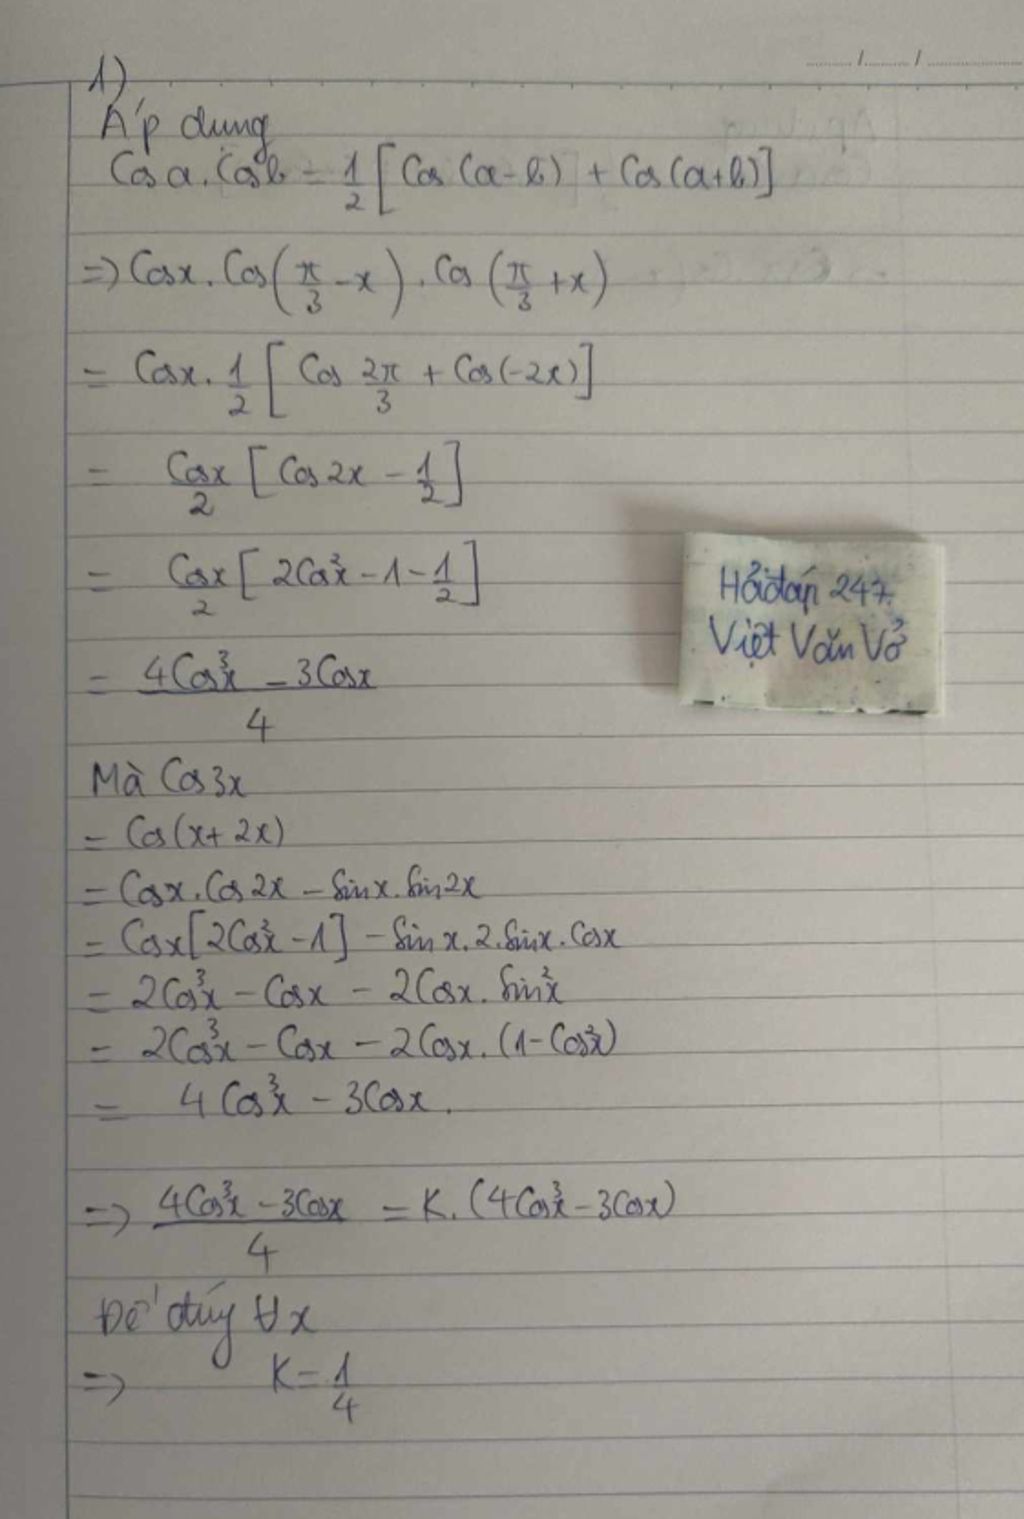 ...../...../..........
1)
Áp dụng
Cos a. Cos b = 1/2 [Cos (a-b) + Cos (a+b)]
=> Cosx. Cos(π/3 - x). Cos (π/3 + x)
= Cosx. 1/2 [Cos 2π/3 + Cos(-2x)]
= Cosx/2 [Cos 2x - 1/2]
= Cosx/2 [2Cos²x - 1 - 1/2]
Hỏi đáp 247.
Việt Văn Vở
= (4Cos³x - 3Cosx)/4
Mà Cos3x
= Cos(x + 2x)
= Cosx. Cos 2x - Sinx. Sin2x
= Cosx[2Cos²x - 1] - Sin x. 2. Sinx. Cosx
= 2Cos³x - Cosx - 2Cosx. Sin²x
= 2Cos³x - Cosx - 2Cosx. (1 - Cos²x)
= 4Cos³x - 3Cosx.
=> (4Cos³x - 3Cosx)/4 = K. (4Cos³x - 3Cosx)
Để đúng ∀x
=> K = 1/4